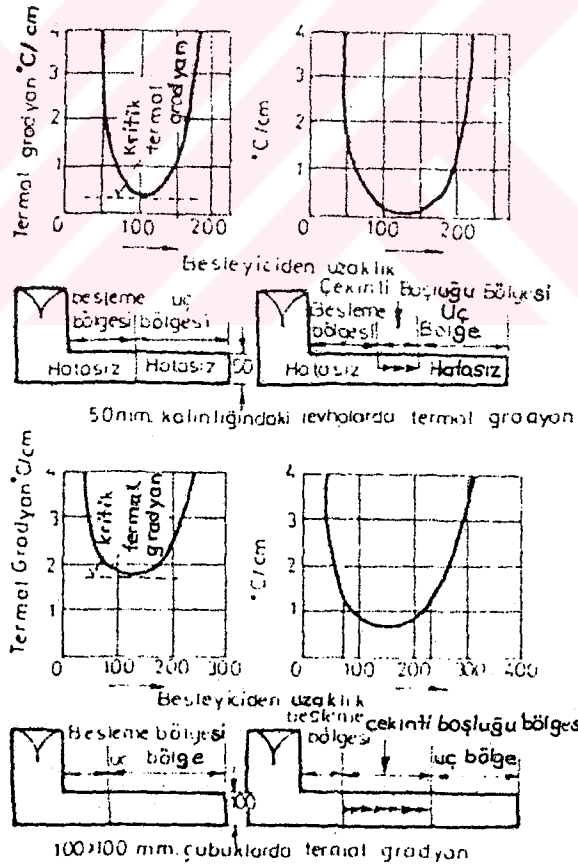 Termal gradyan °C/cm
4
3
2
1
0
100
200
Kritik
termal
gradyan
°C/cm
4
3
2
1
0
100
200
Besleyiciden uzaklık
besleme uç
bölgesi bölgesi
Hatasız Hatasız
50
Çekinti Boşluğu Bölgesi
Besleme Uç
bölgesi Bölge
Hatasız Hatasız
50mm. kalınlığındaki levhalarda termal gradyan
Termal Gradyan °C/cm
4
3
2
1
0
100
200
300
kritik
termal
gradyan
°C/cm
4
3
2
1
0
100
200
300
400
Besleyiciden uzaklık
Besleme bölgesi
uç bölge
100
besleme çekinti boşluğu bölges
bölgesi uç bölge
100x100 mm. çubuklarda termal gradyan